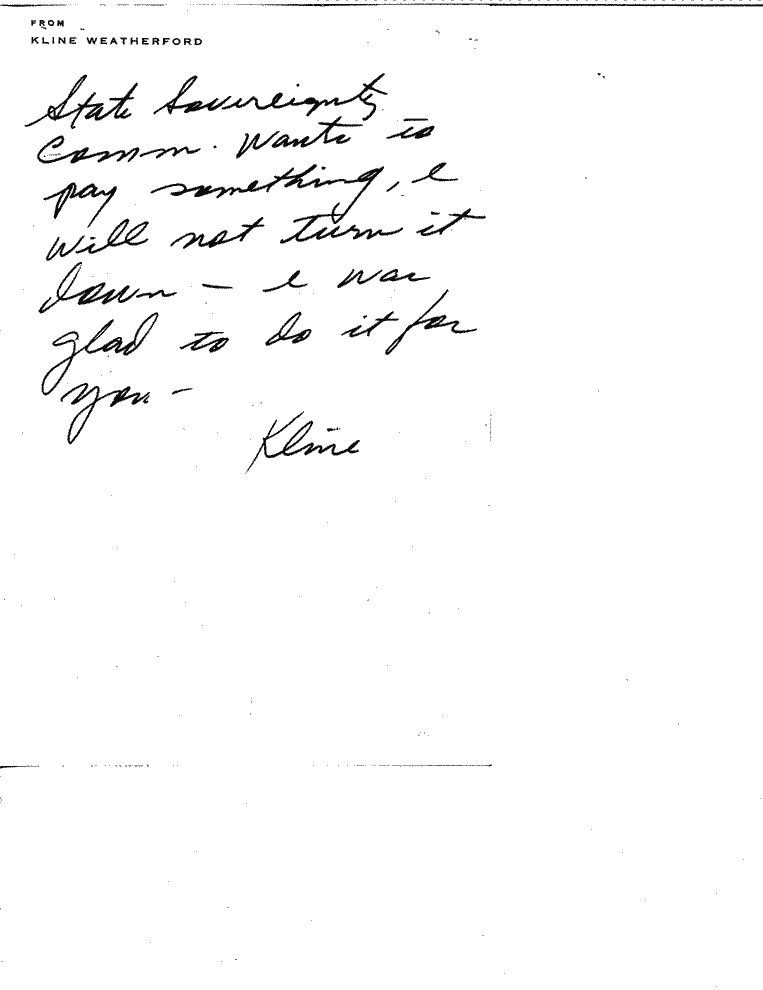 FROM
KLINE WEATHERFORD
State Sovereignty
Comm. Wants to
pay something, I
will not turn it
down – I was
glad to do it for
you –
Kline